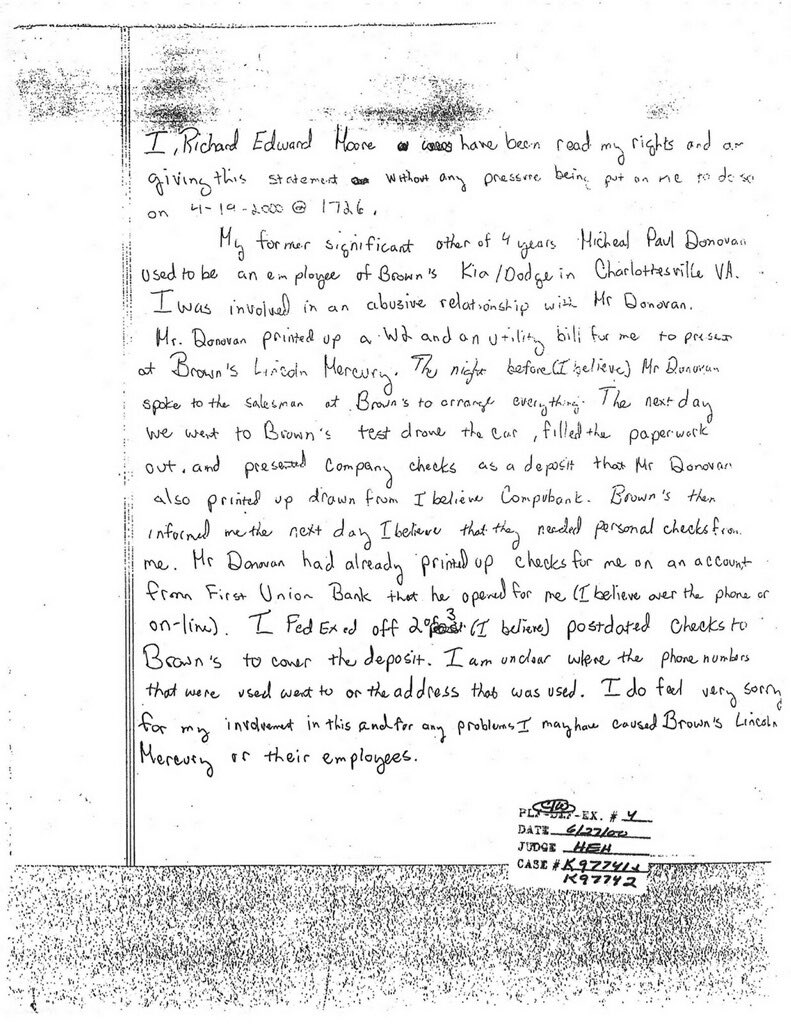 I, Richard Edward Moore have been read my rights and am
giving this statement without any pressure being put on me to do so
on 4-19-2000 @ 1726.
My former significant other of 4 years Micheal Paul Donovan
used to be an employee of Brown's Kia/Dodge in Charlottesville VA.
I was involved in an abusive relationship with Mr Donovan.
Mr. Donovan printed up a W2 and an utility bill for me to present
at Brown's Lincoln Mercury. The night before (I believe) Mr Donovan
spoke to the salesman at Brown's to arrange everything. The next day
we went to Brown's test drove the car, filled the paperwork
out, and presented company checks as a deposit that Mr Donovan
also printed up drawn from I believe Compubank. Brown's then
informed me the next day I believe that they needed personal checks from
me. Mr Donovan had already printed up checks for me on an account
from First Union Bank that he opened for me (I believe over the phone or
on-line). I Fed Ex ed off 2 or 3 (I believe) postdated checks to
Brown's to cover the deposit. I am unclear where the phone numbers
that were used went to or the address that was used. I do feel very sorry
for my involvement in this and for any problems I may have caused Brown's Lincoln
Mercury or their employees.
PLF-DEF-EX. # 4
DATE 6/27/00
JUDGE HEH
CASE # K97741 &
K97742